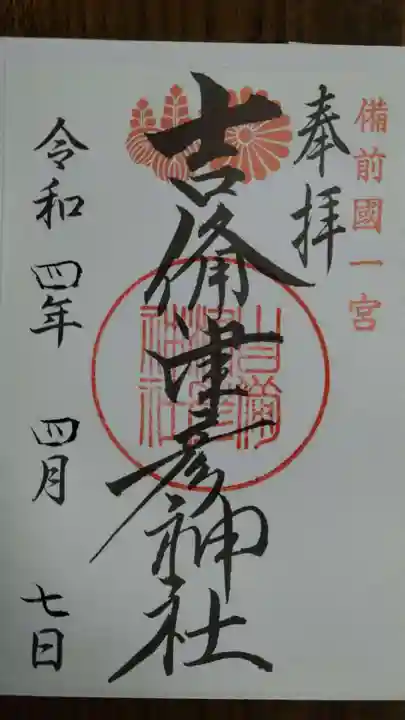 備前國一宮
奉拝
吉備津彦神社
令和四年四月七日